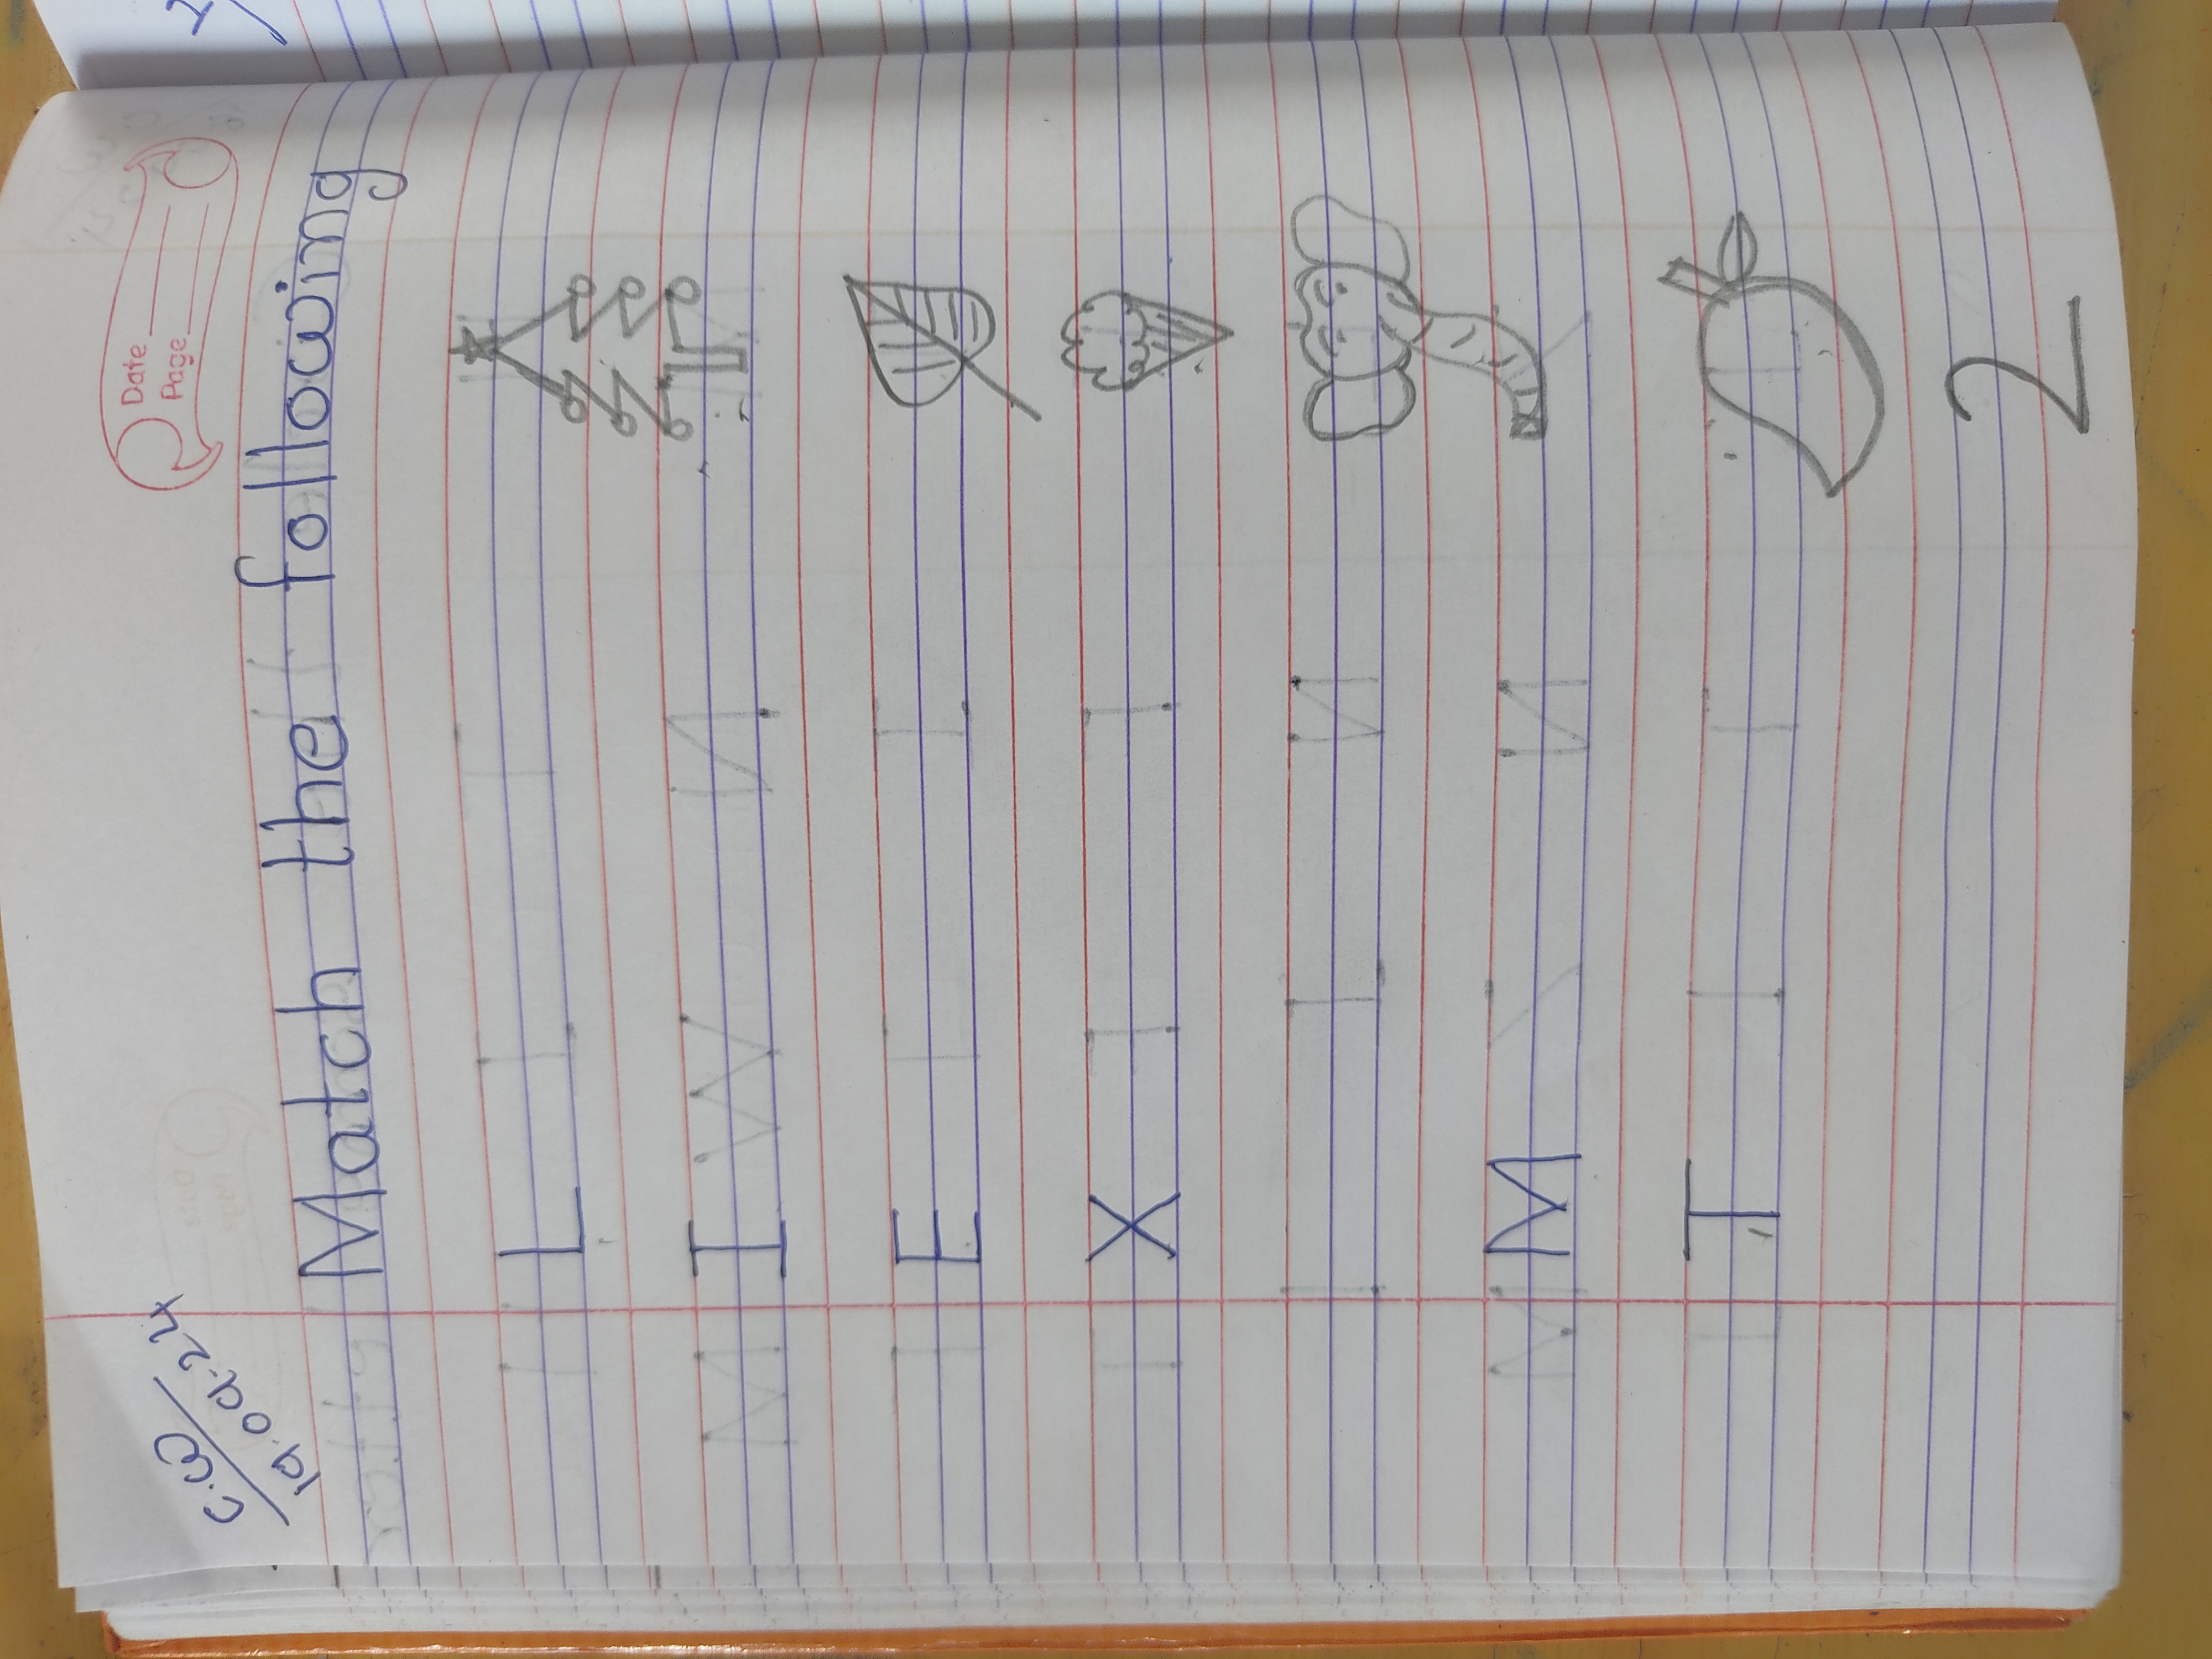 C.W
19.Oct.24
Date
Page
Match the following
L
I
E
X
M
T
2